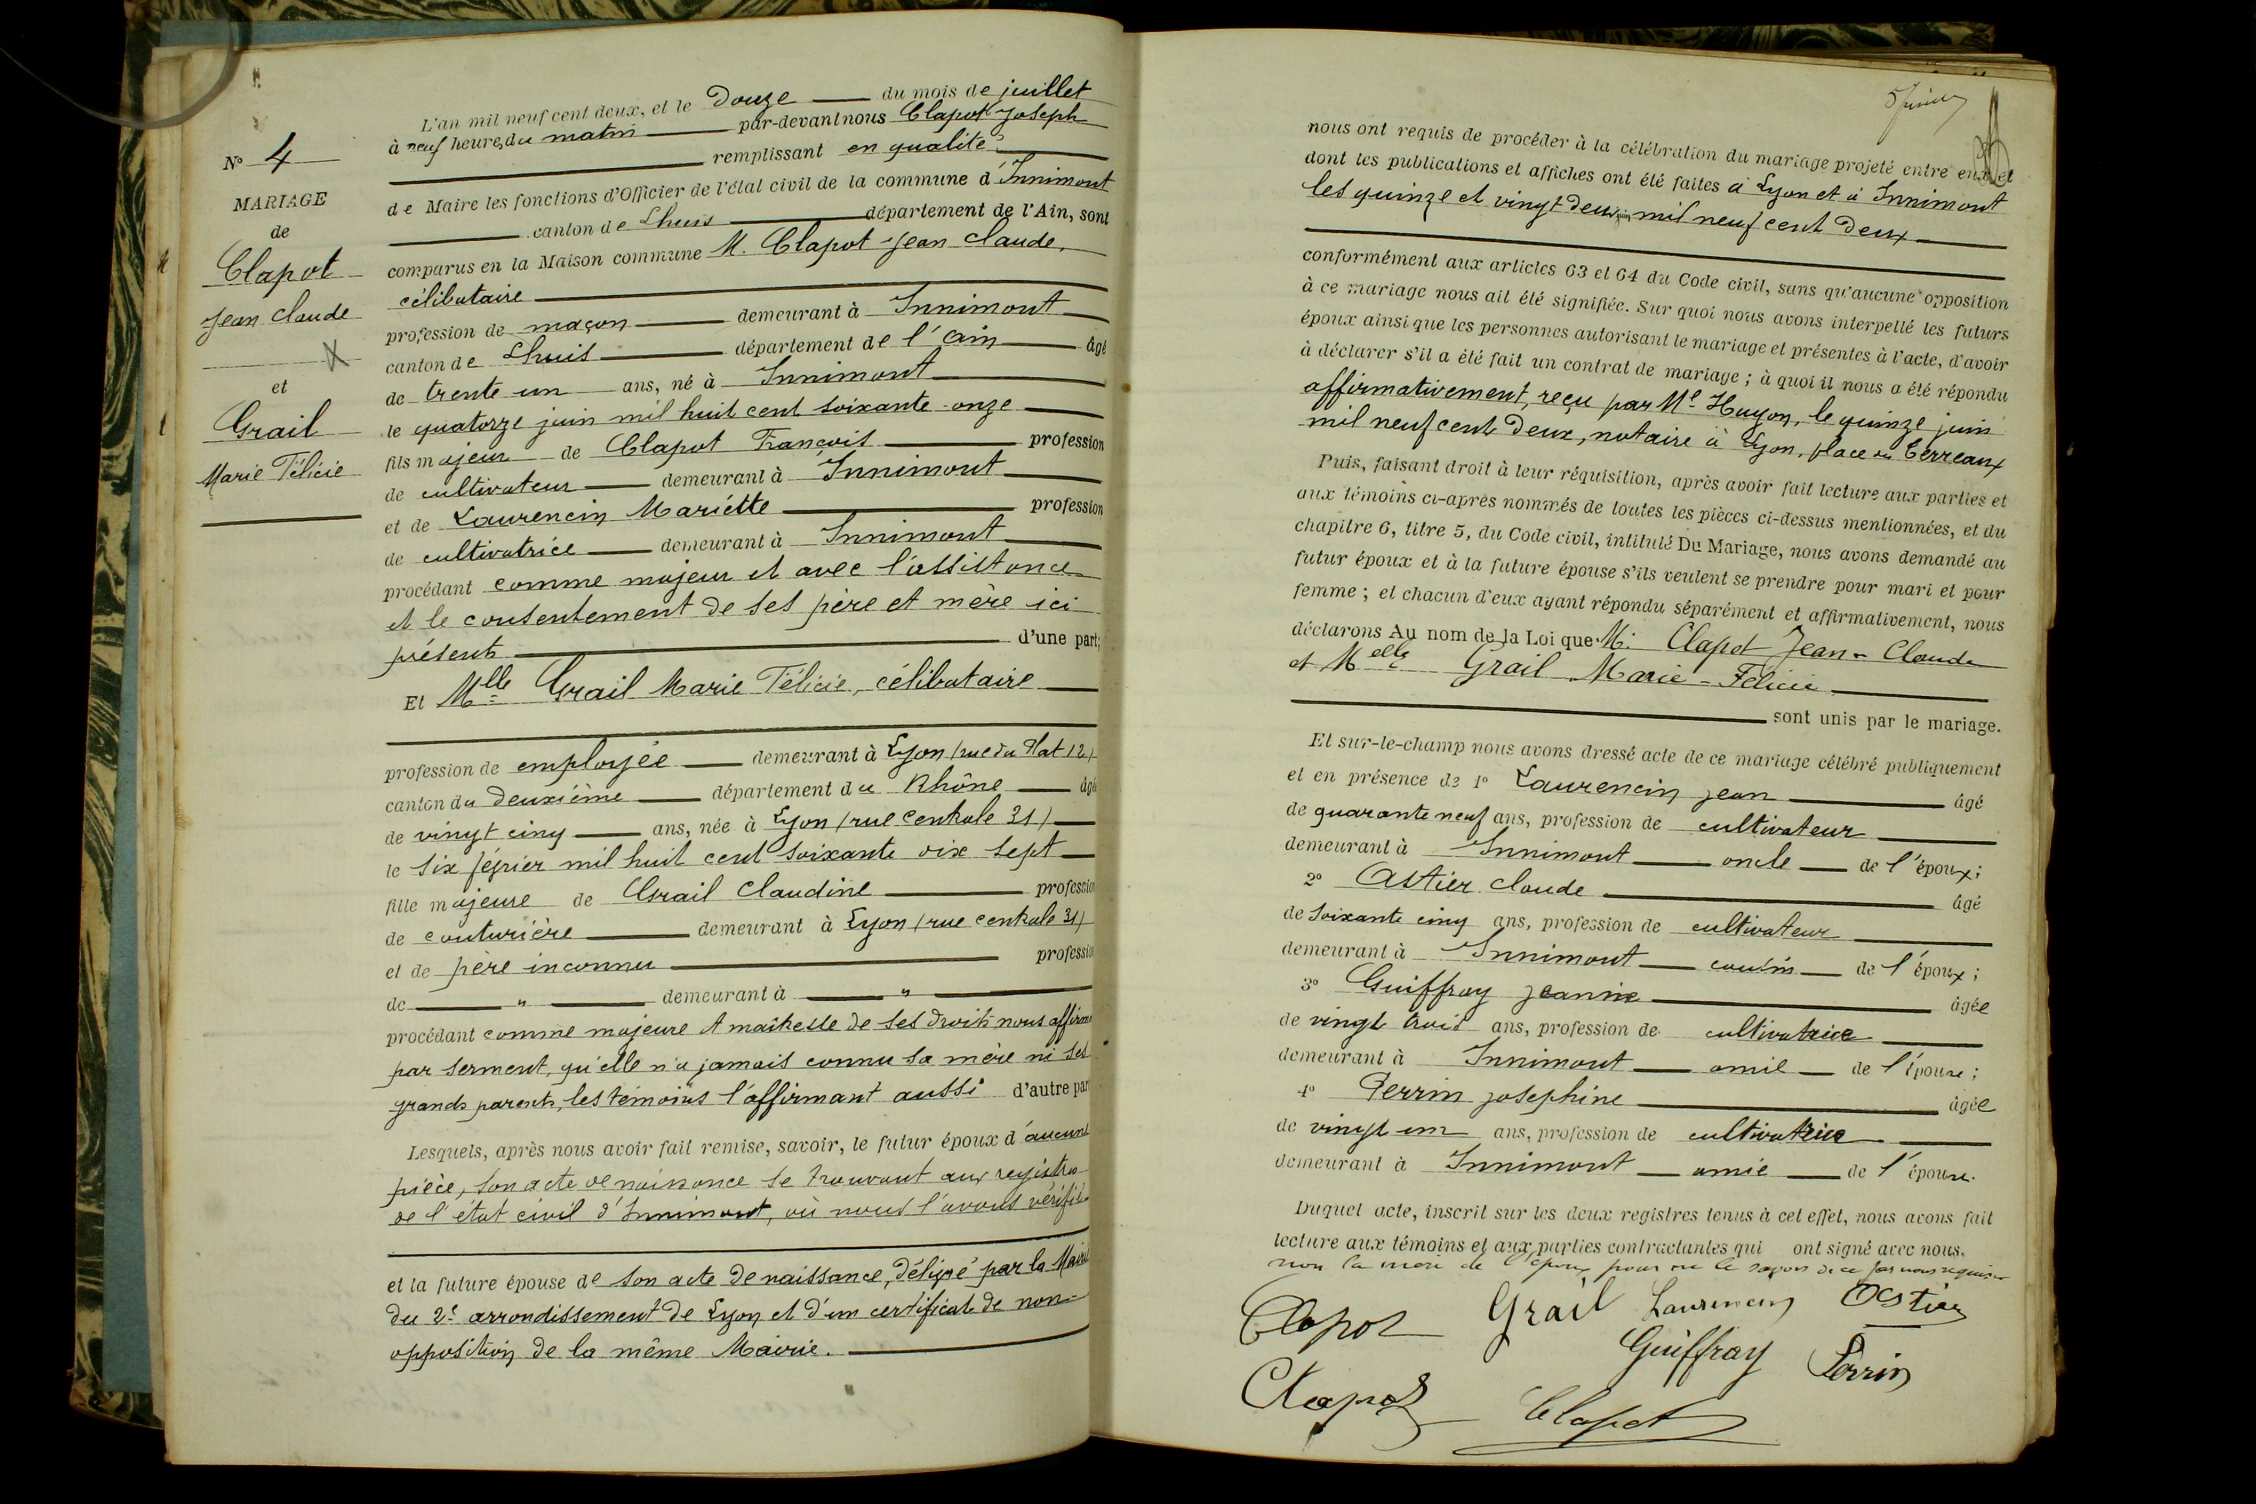 N° 4
MARIAGE
de
Clapot
Jean Claude
et
Grail
Marie Félicie
L'an mil neuf cent deux, et le Douze du mois de juillet
à neuf heures du matin par-devant nous Clapot Joseph
remplissant en qualité
de Maire les fonctions d'Officier de l'état civil de la commune d'Innimont
canton de Lhuis département de l'Ain, sont
comparus en la Maison commune M. Clapot Jean Claude,
célibataire
profession de maçon demeurant à Innimont
canton de Lhuis département de l'Ain âgé
de trente un ans, né à Innimont
le quatorze juin mil huit cent soixante onze
fils majeur de Clapot François profession
de cultivateur demeurant à Innimont
et de Laurencin Mariette profession
de cultivatrice demeurant à Innimont
procédant comme majeur et avec l'assistance
et le consentement de ses père et mère ici
présents d'une part;
Et Mlle Grail Marie Félicie, célibataire
profession de employée demeurant à Lyon (rue du Plat 12)
canton du deuxième département du Rhône âgé
de vingt cinq ans, née à Lyon (rue centrale 31)
le six février mil huit cent soixante dix sept
fille majeure de Grail Claudine profession
de couturière demeurant à Lyon (rue centrale 31)
et de père inconnu profession
de " demeurant à "
procédant comme majeure et maîtresse de ses droits nous affirme
par serment, qu'elle n'a jamais connu sa mère ni ses
grands parents, les témoins l'affirmant aussi d'autre par
Lesquels, après nous avoir fait remise, savoir, le futur époux d'aucune
pièce, son acte de naissance se trouvant aux registres
de l'état civil d'Innimont, où nous l'avons vérifié
et la future épouse de son acte de naissance, délivré par la Mairie
du 2e arrondissement de Lyon et d'un certificat de non-
opposition de la même Mairie.
nous ont requis de procéder à la célébration du mariage projeté entre eux et
dont les publications et affiches ont été faites à Lyon et à Innimont
les quinze et vingt deux juin mil neuf cent deux
conformément aux articles 63 et 64 du Code civil, sans qu'aucune opposition
à ce mariage nous ait été signifiée. Sur quoi nous avons interpellé les futurs
époux ainsi que les personnes autorisant le mariage et présentes à l'acte, d'avoir
à déclarer s'il a été fait un contrat de mariage; à quoi il nous a été répondu
affirmativement, reçu par Me Huyon, le quinze juin
mil neuf cent deux, notaire à Lyon, place des Terreaux
Puis, faisant droit à leur réquisition, après avoir fait lecture aux parties et
aux témoins ci-après nommés de toutes les pièces ci-dessus mentionnées, et du
chapitre 6, titre 5, du Code civil, intitulé Du Mariage, nous avons demandé au
futur époux et à la future épouse s'ils veulent se prendre pour mari et pour
femme; et chacun d'eux ayant répondu séparément et affirmativement, nous
déclarons Au nom de la Loi que M. Clapot Jean-Claude
et Melle Grail Marie-Félicie
sont unis par le mariage.
Et sur-le-champ nous avons dressé acte de ce mariage célébré publiquement
et en présence de 1° Laurencin Jean âgé
de quarante neuf ans, profession de cultivateur
demeurant à Innimont oncle de l'époux;
2° Astier Claude âgé
de soixante cinq ans, profession de cultivateur
demeurant à Innimont cousin de l'époux;
3° Guiffray Jeanne âgée
de vingt trois ans, profession de cultivatrice
demeurant à Innimont amie de l'épouse;
4° Perrin Josephine âgée
de vingt un ans, profession de cultivatrice
demeurant à Innimont amie de l'épouse.
Duquel acte, inscrit sur les deux registres tenus à cet effet, nous avons fait
lecture aux témoins et aux parties contractantes qui ont signé avec nous.
non la mère de l'époux pour ne le savoir de ce par nous requise
Clapot Grail Laurencin Astier
Guiffray Perrin
Clapot Clapot